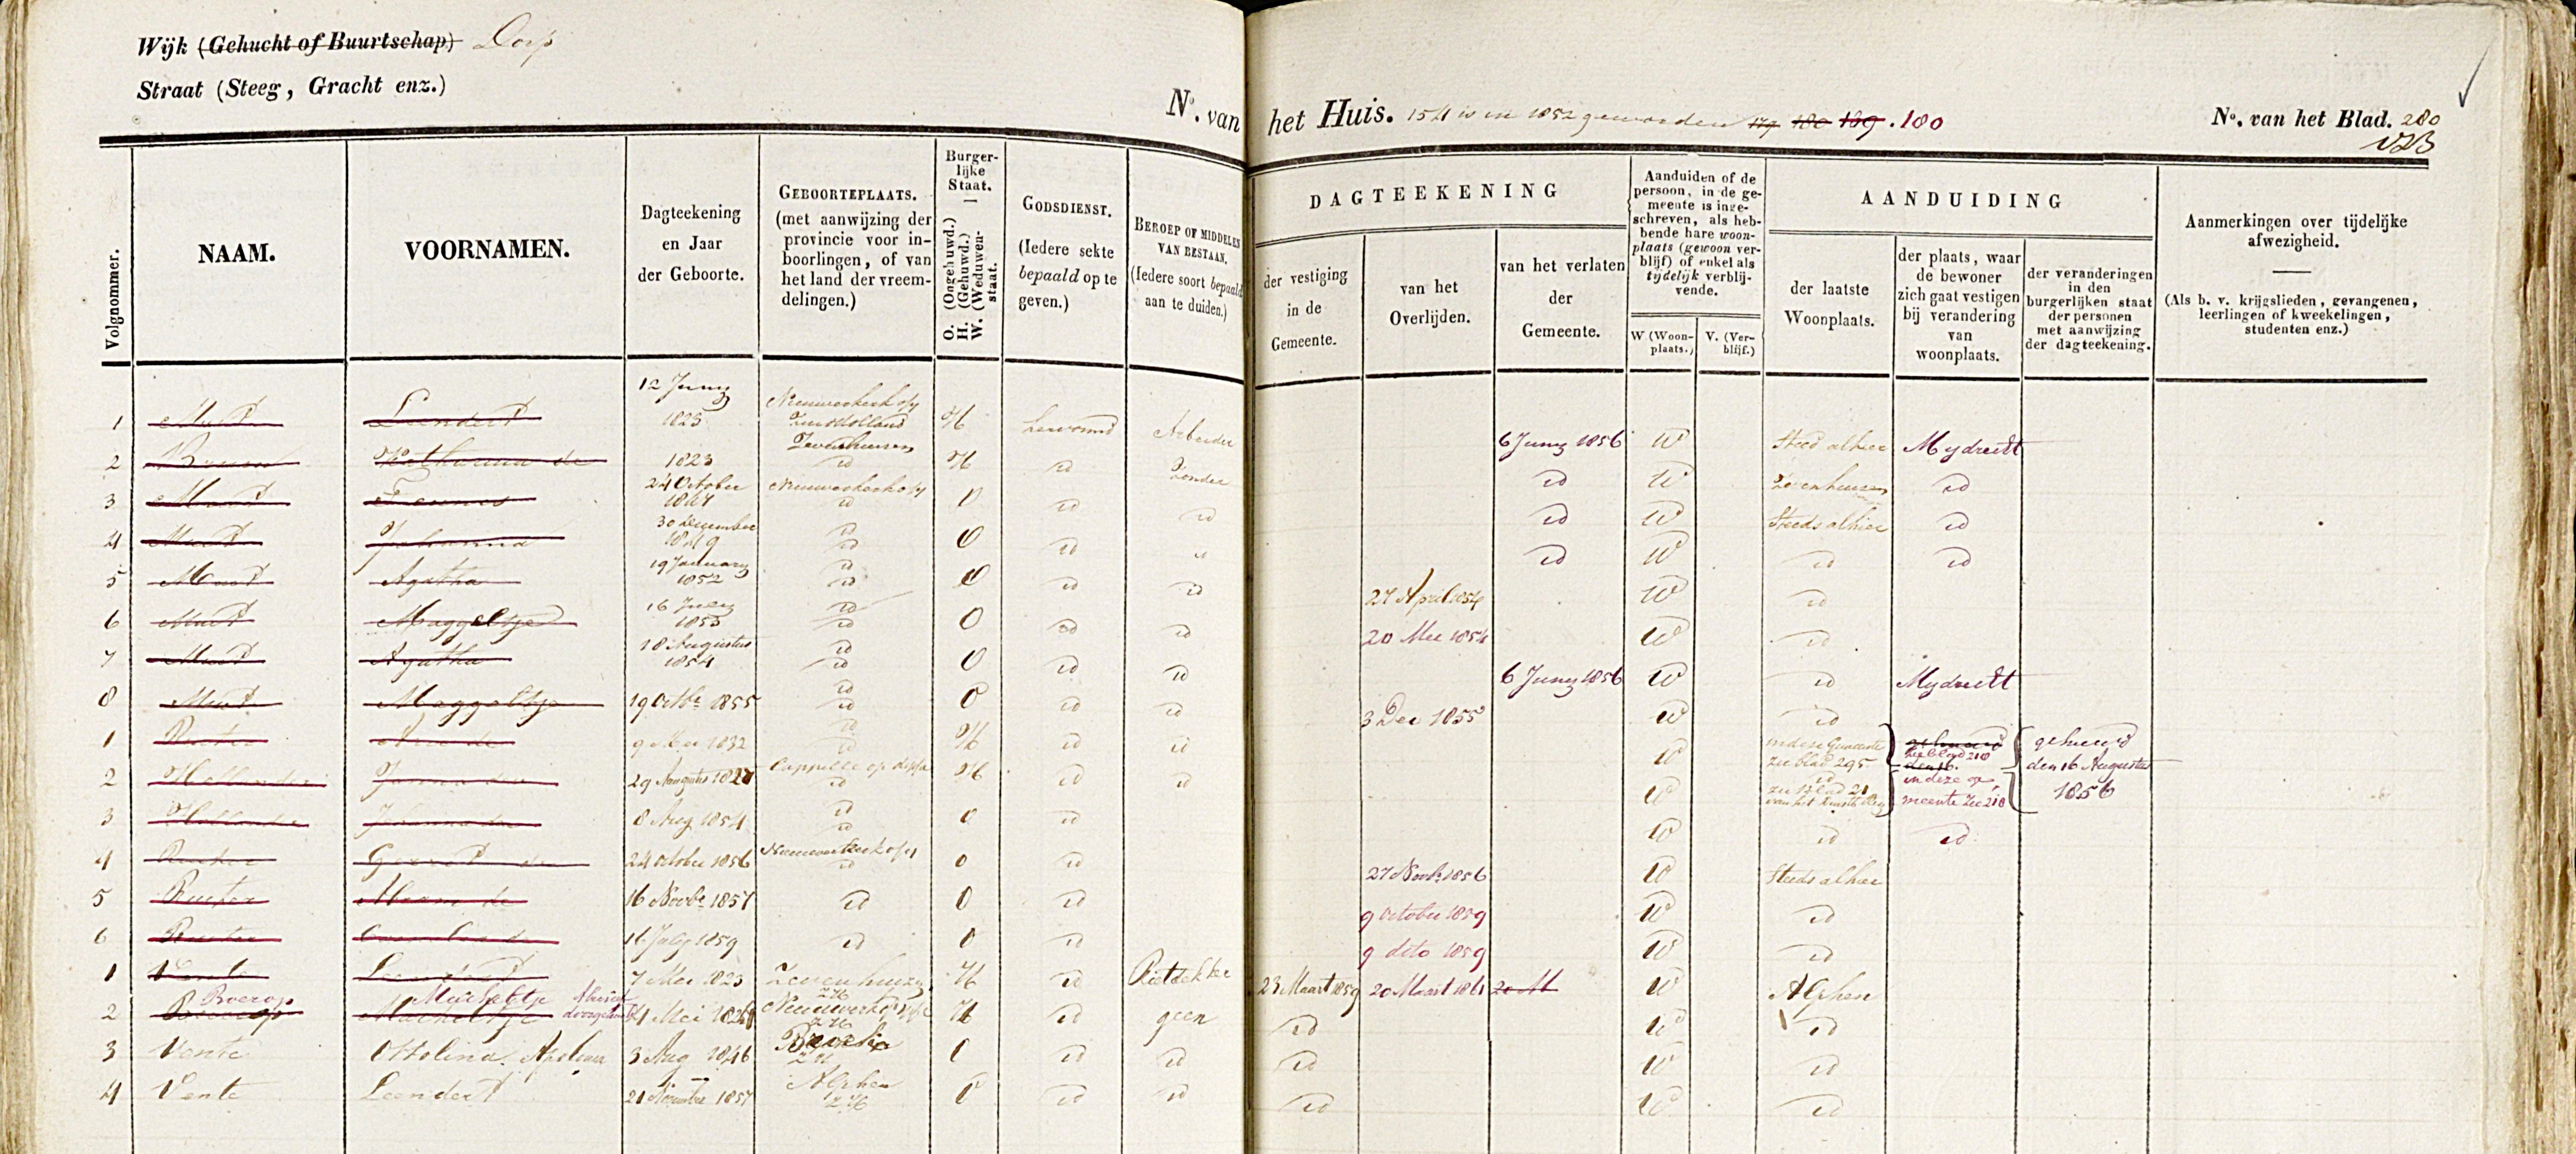 Wijk (Gehucht of Buurtschap) Dorp
Straat (Steeg, Gracht enz.)
No. van het Huis. 154 is in 1852 geworden 179 180 189. 180
No. van het Blad. 280
Volgnommer.
NAAM.
VOORNAMEN.
Dagteekening en Jaar der Geboorte.
GEBOORTEPLAATS. (met aanwijzing der provincie voor inboorlingen, of van het land der vreemdelingen.)
Burgerlijke Staat. O. (Ongehuwd.) H. (Gehuwd.) W. (Weduwenstaat.
GODSDIENST. (Iedere sekte bepaald op te geven.)
BEROEP OF MIDDELEN VAN BESTAAN. (Iedere soort bepaald aan te duiden.)
DAGTEEKENING
der vestiging in de Gemeente.
van het Overlijden.
van het verlaten der Gemeente.
Aanduiden of de persoon, in de gemeente is ingeschreven, als hebbende hare woonplaats (gewoon verblijf) of enkel als tijdelijk verblijvende.
W (Woonplaats.)
V. (Verblijf.)
AANDUIDING
der laatste Woonplaats.
der plaats, waar de bewoner zich gaat vestigen bij verandering van woonplaats.
der veranderingen in den burgerlijken staat der personen met aanwijzing der dagteekening.
Aanmerkingen over tijdelijke afwezigheid.
(Als b. v. krijgslieden, gevangenen, leerlingen of kweekelingen, studenten enz.)
1 Leendert 12 Juny 1823 Nieuwerkerk o/y Zuid Holland H hervormd Arbeider 6 Juny 1856 W Steeds alhier Mydrecht
2 Katharina de 1823 Zevenhuizen id H id Zonder id W Zevenhuizen id
3 24 October 1847 Nieuwerkerk o/y id O id id id W Steeds alhier id
4 Johanna 30 December 1849 id id O id id id W id id
5 Agatha 19 January 1852 id id O id id 27 April 1854 W id
6 Maggeltje 16 July 1853 id id O id id 20 Mei 1854 W id
7 Agatha 18 Augustus 1854 id id O id id 6 Juny 1856 W id Mydrecht
8 Maggeltje 19 Octbr 1855 id id O id id 3 Dec 1855 W id
1 Ruiter Arie de 9 Mei 1832 id id H id id W in deze Gemeente zie blad 295 gehuwd zie blad 210 den 16 gehuwd den 16 Augustus 1856
2 Hollander Janna den 29 Augustus Cappelle op d id H id id W id zie blad 21 in deze gemeente zie 210
3 Hollander Johanna den 8 Aug 1854 id id O id W id id
4 Ruiter Gerrit de 24 October 1856 Nieuwerkerk o/y id O id 27 Novbr 1856 W Steeds alhier
5 Ruiter Abram de 16 Novbr 1857 id O id 9 October 1859 W id
6 Ruiter 16 July 1859 id O id 9 dito 1859 W id
1 Vente Leendert 7 Mei 1823 Zevenhuizen ZH H id Rietdekker 23 Maart 1859 20 Maart 1861 20 M W Alphen
2 Boerop Boerop Machteltje Machteltje Abusief doorgehaald Mei Nieuwerkerk ZH H id geen id W id
3 Vente Ottolina 3 Aug 1846 ZH O id id id W id
4 Vente Leendert 21 November 1857 Alphen ZH O id id id W id